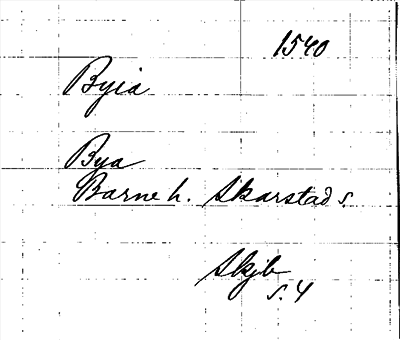 1540
Byia
Bya
Barne h. Skarstad s.
Skjb
s. 4